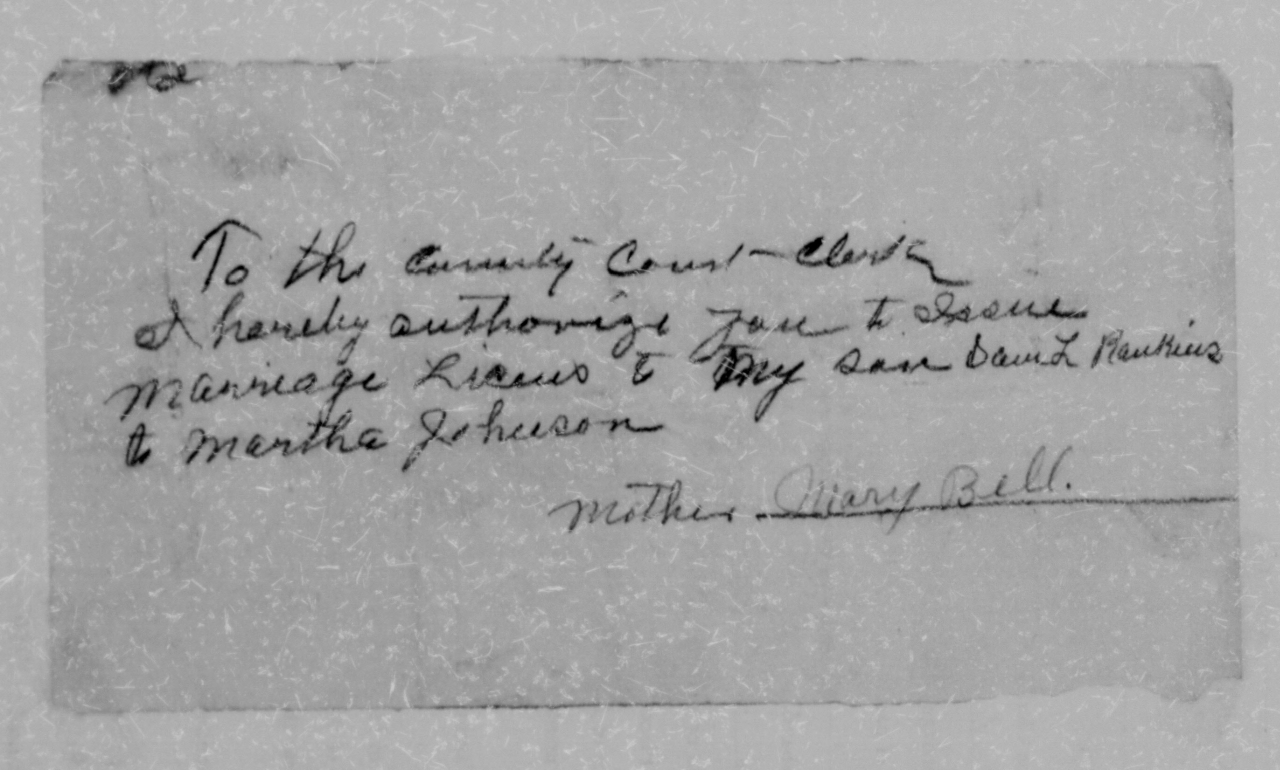 To the County Court Clerk
I hereby authorize you to Issue
Marriage Licens to My son David Rankins
to Martha Johnson
Mother Mary Bell.